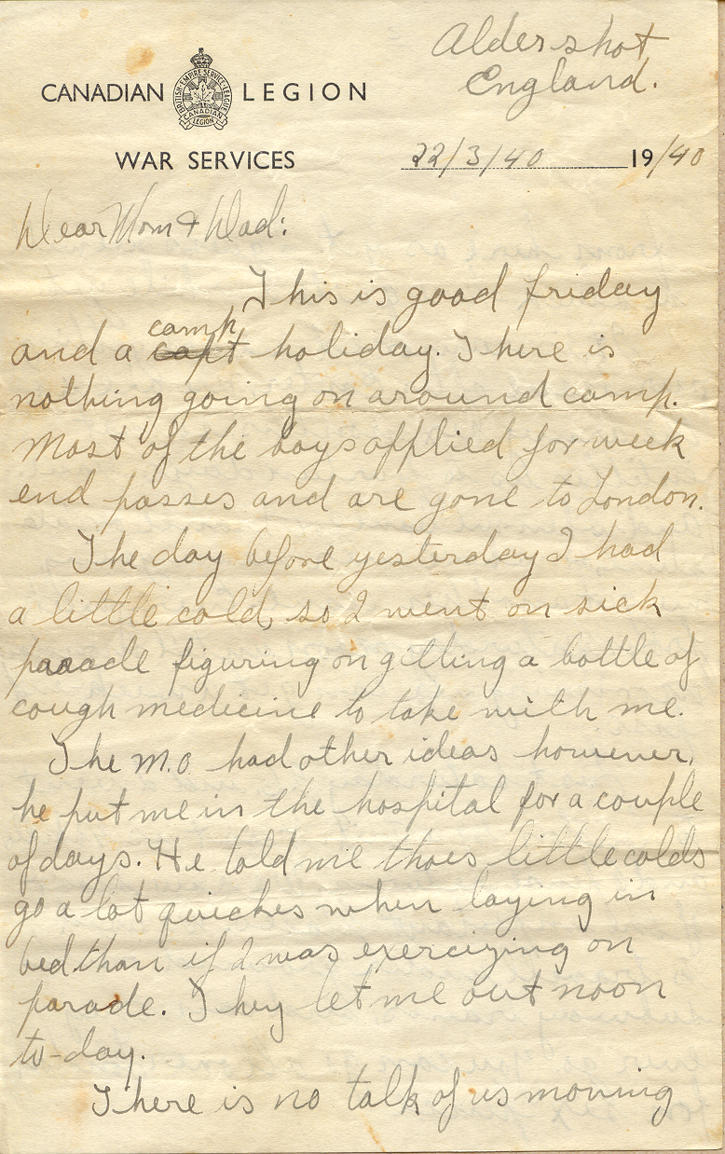 Aldershot
England.
CANADIAN LEGION
BRITISH EMPIRE SERVICE LEAGUE
CANADIAN
LEGION
WAR SERVICES
22/3/40 19/40
Dear Mom & Dad:
This is good friday
camp
and a capt holiday. There is
nothing going on around camp.
Most of the boys applied for week
end passes and are gone to London.
The day before yesterday I had
a little cold, so I went on sick
paaade figuring on gitting a bottle of
cough medicine to take with me.
The M.O. had other ideas however,
he put me in the hospital for a couple
of days. He told me thoes little colds
go a lot quicker when laying in
bed than if I was exercizing on
parade. They let me out noon
to-day.
There is no talk of us moving